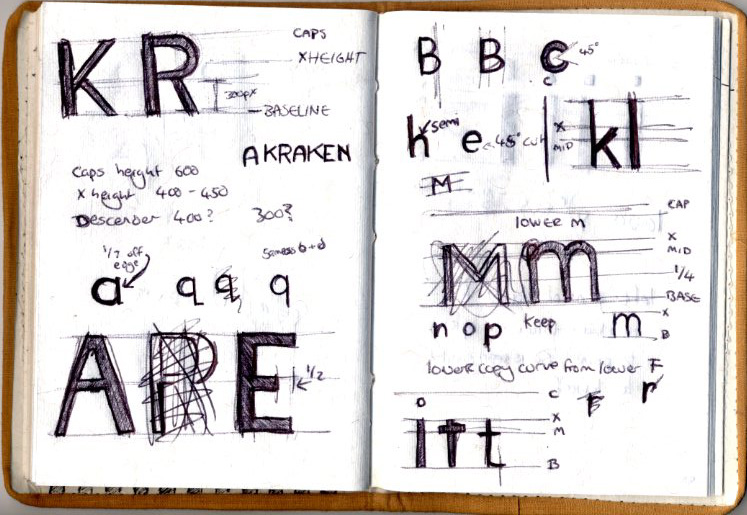 KR
CAPS
X HEIGHT
300px
BASELINE
A KRAKEN
Caps height 600
X height 400 - 450
Descender 400? 300?
1/2 off
edge
a q q q
APE
1/2
B B C 45°
c
h semi e 45° cut X
MID
kl
M
CAP
LOWER M
X
MID
Mm
1/4
BASE
n o p keep m X
B
lower copy curve from lower F
F r
C
i t t
X
M
B